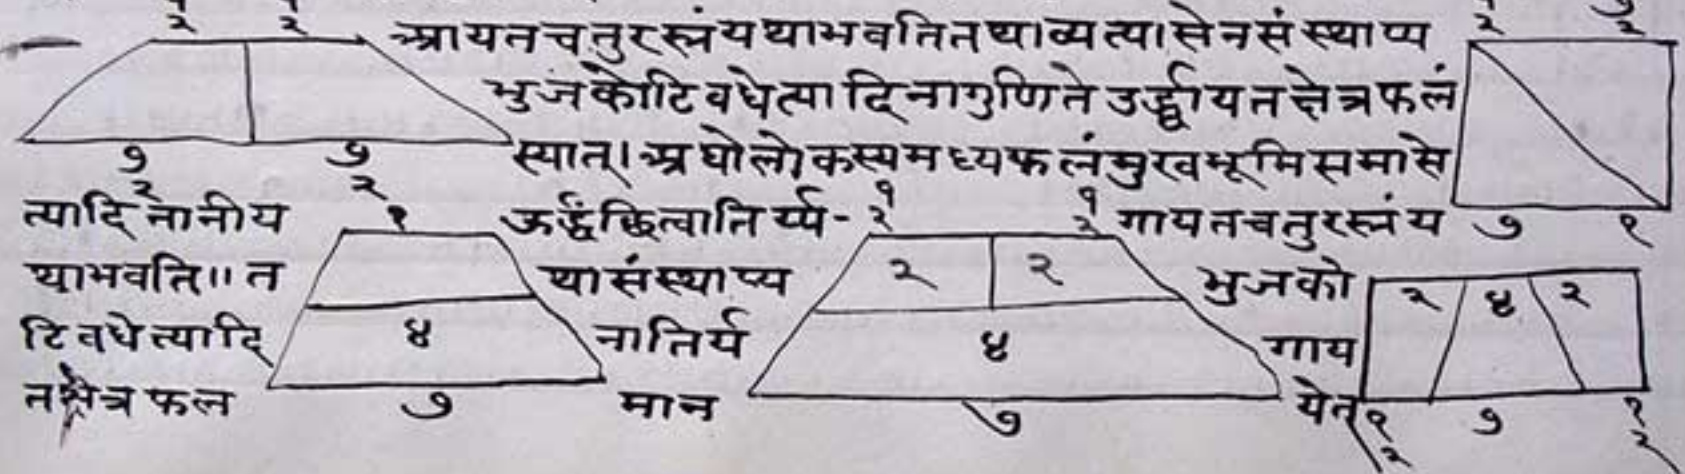 १ २ १ २ आयतचतुरस्त्रंयथाभवतितथाव्यत्यासेनसंस्थाप्य १ २ ७ २
भुजकोटिवधेत्यादिनागुणितेउर्द्ध्वायतक्षेत्रफलं
७ २ ७ २ स्यात्।अधोलोकस्यमध्यफलंमुखभूमिसमासे
त्यादिनानीय १ ऊर्द्धंछित्वातिर्य्य- १ २ १ २ गायतचतुरस्त्रंय ७ १
थाभवति॥त थासंस्थाप्य २ २ भुजको २ ४ २
टिवधेत्यादि ४ नातिर्य ४ गाय
तक्षेत्रफल ७ मान ७ येत् १ २ ७ १ २